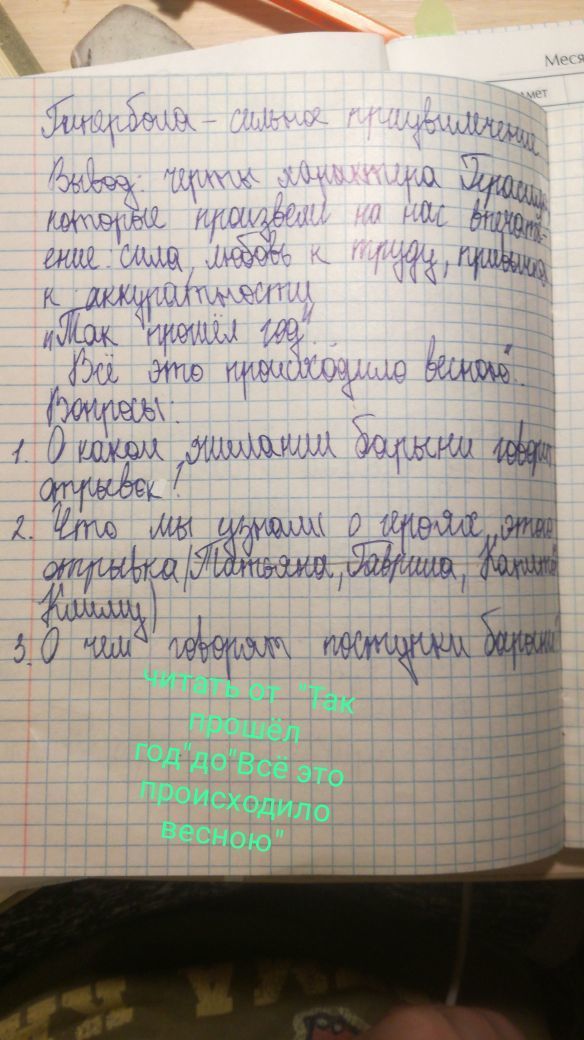 Меся
мет
Гипербола – сильное приувиличение
Вывод: черты характера Герасима,
которые произвели на нас впечатл-
ение: сила, любовь к труду, привычка
к аккуратности
„Так прошёл год".
Всё это происходило весною"..
Вопросы:
1. О каком желании барыни говорит
отрывок?
2. Что мы узнали о героях этого
отрывка (Татьяна, Гаврила, Капитон
Климу)
3. О чем говорят поступки барыни?
читать от "Так
прошёл
год"до"Всё это
происходило
весною"